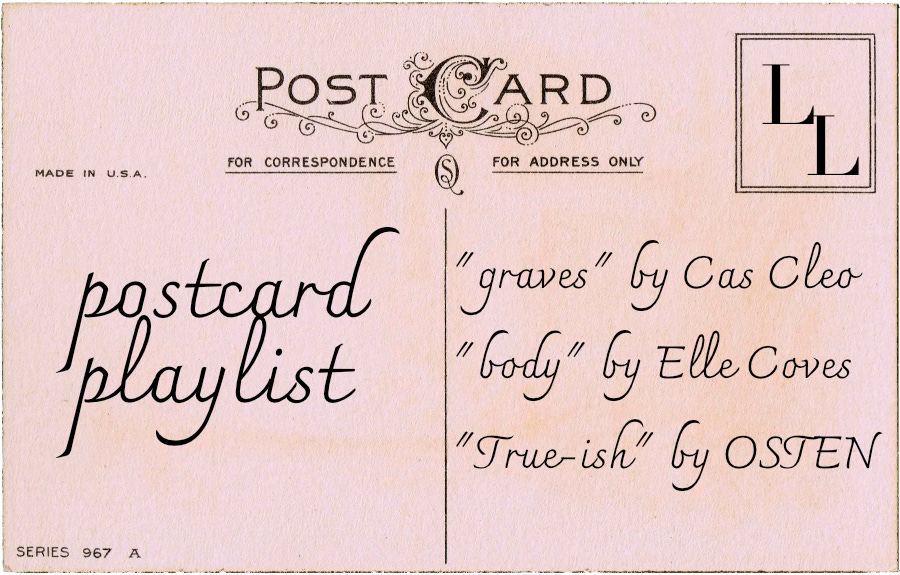 POST CARD
FOR CORRESPONDENCE
FOR ADDRESS ONLY
MADE IN U.S.A.
L
L
postcard
playlist
"graves" by Cas Cleo
"body" by Elle Coves
"True-ish" by OSTEN
SERIES 967 A